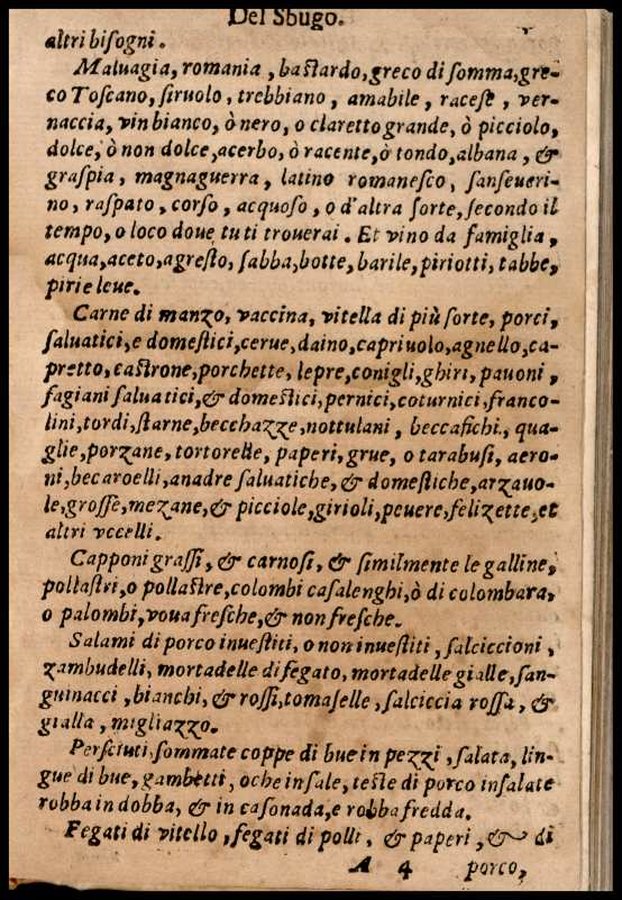 Del Sbugo.
altri biſogni.
Maluagia, romania, baſtardo, greco di ſomma, gre-
co Toſcano, ſiruolo, trebbiano, amabile, raceſe, ver-
naccia, vin bianco, ò nero, o claretto grande, ò picciolo,
dolce, ò non dolce, acerbo, ò racente, ò tondo, albana, &
graſpia, magnaguerra, latino romaneſco, ſanſeueri-
no, raſpato, corſo, acquoſo, o d'altra ſorte, ſecondo il
tempo, o loco doue tu ti trouerai. Et vino da famiglia,
acqua, aceto, agreſto, ſabba, botte, barile, piriotti, tabbe,
pirie leue.
Carne di manzo, vaccina, vitella di più ſorte, porci,
ſaluatici, e domeſtici, cerue, daino, capriuolo, agnello, ca-
pretto, caſtrone, porchette, lepre, conigli, ghiri, pauoni,
fagiani ſaluatici, & domeſtici, pernici, coturnici, franco-
lini, tordi, ſtarne, beccbazze, nottulani, beccafichi., qua-
glie, porzane, tortorelle, paperi, grue, o tarabuſi, aero-
ni, becaroelli, anadre ſaluatiche, & domeſtiche, arzauo-
le, groſſe, mezane, & picciole, girioli, peuere, felizette, et
altri vccelli.
Capponi graſſi, & carnoſi, & ſimilmente le galline,
pollaſtri, o pollaſtre, colombi caſalenghi, ò di colombara,
o palombi, voua freſche, & non freſche.
Salami di porco inueſtiti, o non inueſtiti, ſalciccioni,
zambudelli, mortadelle di fegato, mortadelle gialle, ſan-
guinacci, bianchi, & roſſi, tomaſelle, ſalciccia roſſa, &
gialla, migliazzo.
Perſciuti, ſommate coppe di bue in pezzi, ſalata, lin-
gue di bue, gambetti, oche in ſale, teſte di porco inſalate
robba in dobba, & in caſonada, e robba fredda.
Fegati di vitello, fegati di polli, & paperi, & di
A 4 porco,